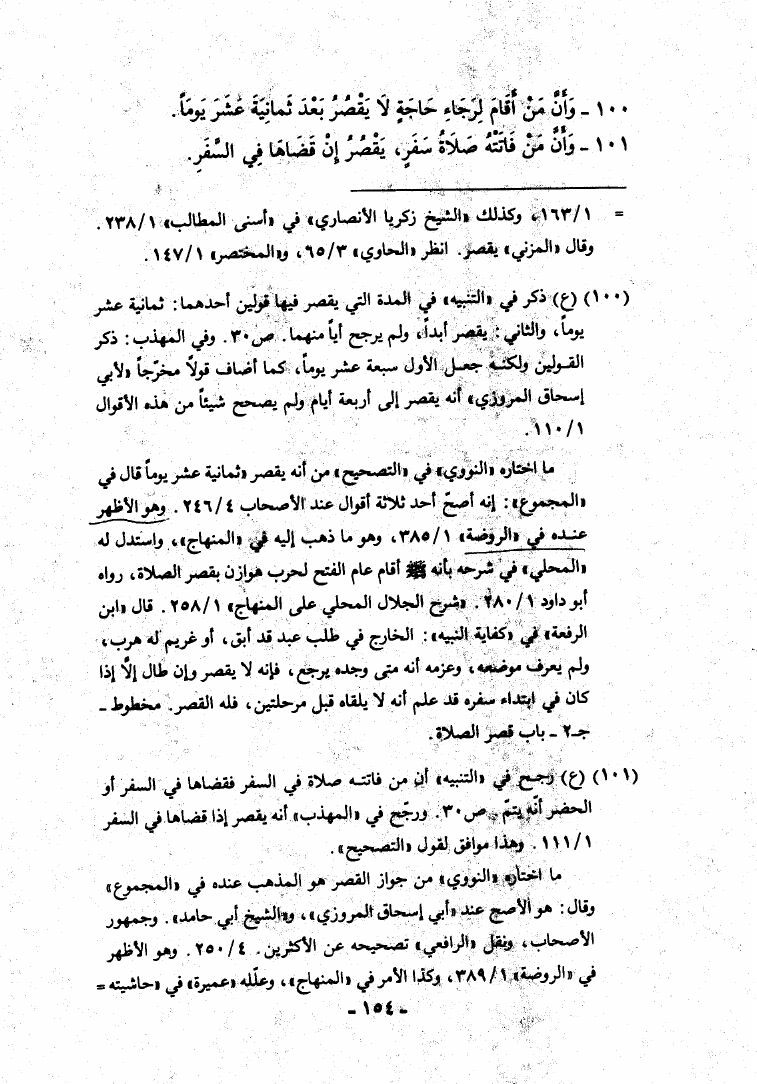 ١٠٠ ـ وَأَنَّ مَنْ أَقَامَ لِرَجَاءِ حَاجَةٍ لَا يَقْصُرُ بَعْدَ ثَمانِيَةَ عَشَرَ يَومَاً.
١٠١ ـ وَأَنَّ مَنْ فَاتَتْهُ صَلَاةُ سَفَرٍ، يَقْصُرُ إنْ قَضَاهَا فِي السَّفَرِ.
= ١/١٦٣، وكذلك «الشيخ زكريا الأنصاري» في «أسنى المطالب» ١/٢٣٨.
وقال «المزني» يقصر. انظر «الحاوي» ٣/٦٥، و«المختصر» ١/١٤٧.
(١٠٠) (ع) ذكر في «التنبيه» في المدة التي يقصر فيها قولين أحدهما: ثمانية عشر
يوماً، والثاني: يقصر أبداً، ولم يرجح أياً منهما. ص٣٠. وفي المهذب: ذكر
القولين ولكنه جعل الأول سبعة عشر يوماً، كما أضاف قولاً مخرّجاً «لأبي
إسحاق المروزي» أنه يقصر إلى أربعة أيام ولم يصحح شيئاً من هذه الأقوال
١/١١٠.
ما اختاره «النووي» في «التصحيح» من أنه يقصر «ثمانية عشر يوماً قال في
«المجموع»: إنه أصحّ أحد ثلاثة أقوال عند الأصحاب ٤/٢٤٦. وهو الأظهر
عنده في «الروضة» ١/٣٨٥، وهو ما ذهب إليه في «المنهاج»، واستدل له
«المحلي» في شرحه بأنه ﷺ أقام عام الفتح لحرب هوازن بقصر الصلاة، رواه
أبو داود ١/٢٨٠. «شرح الجلال المحلي على المنهاج» ١/٢٥٨. قال «ابن
الرفعة» في «كفاية النبيه»: الخارج في طلب عبد قد أبق، أو غريم له هرب،
ولم يعرف موضعه، وعزمه أنه متى وجده يرجع، فإنه لا يقصر وإن طال إلّا إذا
كان في ابتداء سفره قد علم أنه لا يلقاه قبل مرحلتين، فله القصر. مخطوط ـ
جـ٢ ـ باب قصر الصلاة.
(١٠١) (ع) رجح في «التنبيه» أن من فاتته صلاة في السفر فقضاها في السفر أو
الحضر أنّه يتمّ. ص٣٠. ورجّح في «المهذب» أنه يقصر إذا قضاها في السفر
١/١١١. وهذا موافق لقول «التصحيح».
ما اختاره «النووي» من جواز القصر هو المذهب عنده في «المجموع»
وقال: هو الأصح عند «أبي إسحاق المروزي»، و«الشيخ أبي حامد». وجمهور
الأصحاب، ونقل «الرافعي» تصحيحه عن الأكثرين. ٤/٢٥٠. وهو الأظهر
في «الروضة» ١/٣٨٩، وكذا الأمر في «المنهاج»، وعلّله «عميرة» في «حاشيته =
ـ ١٥٤ ـ